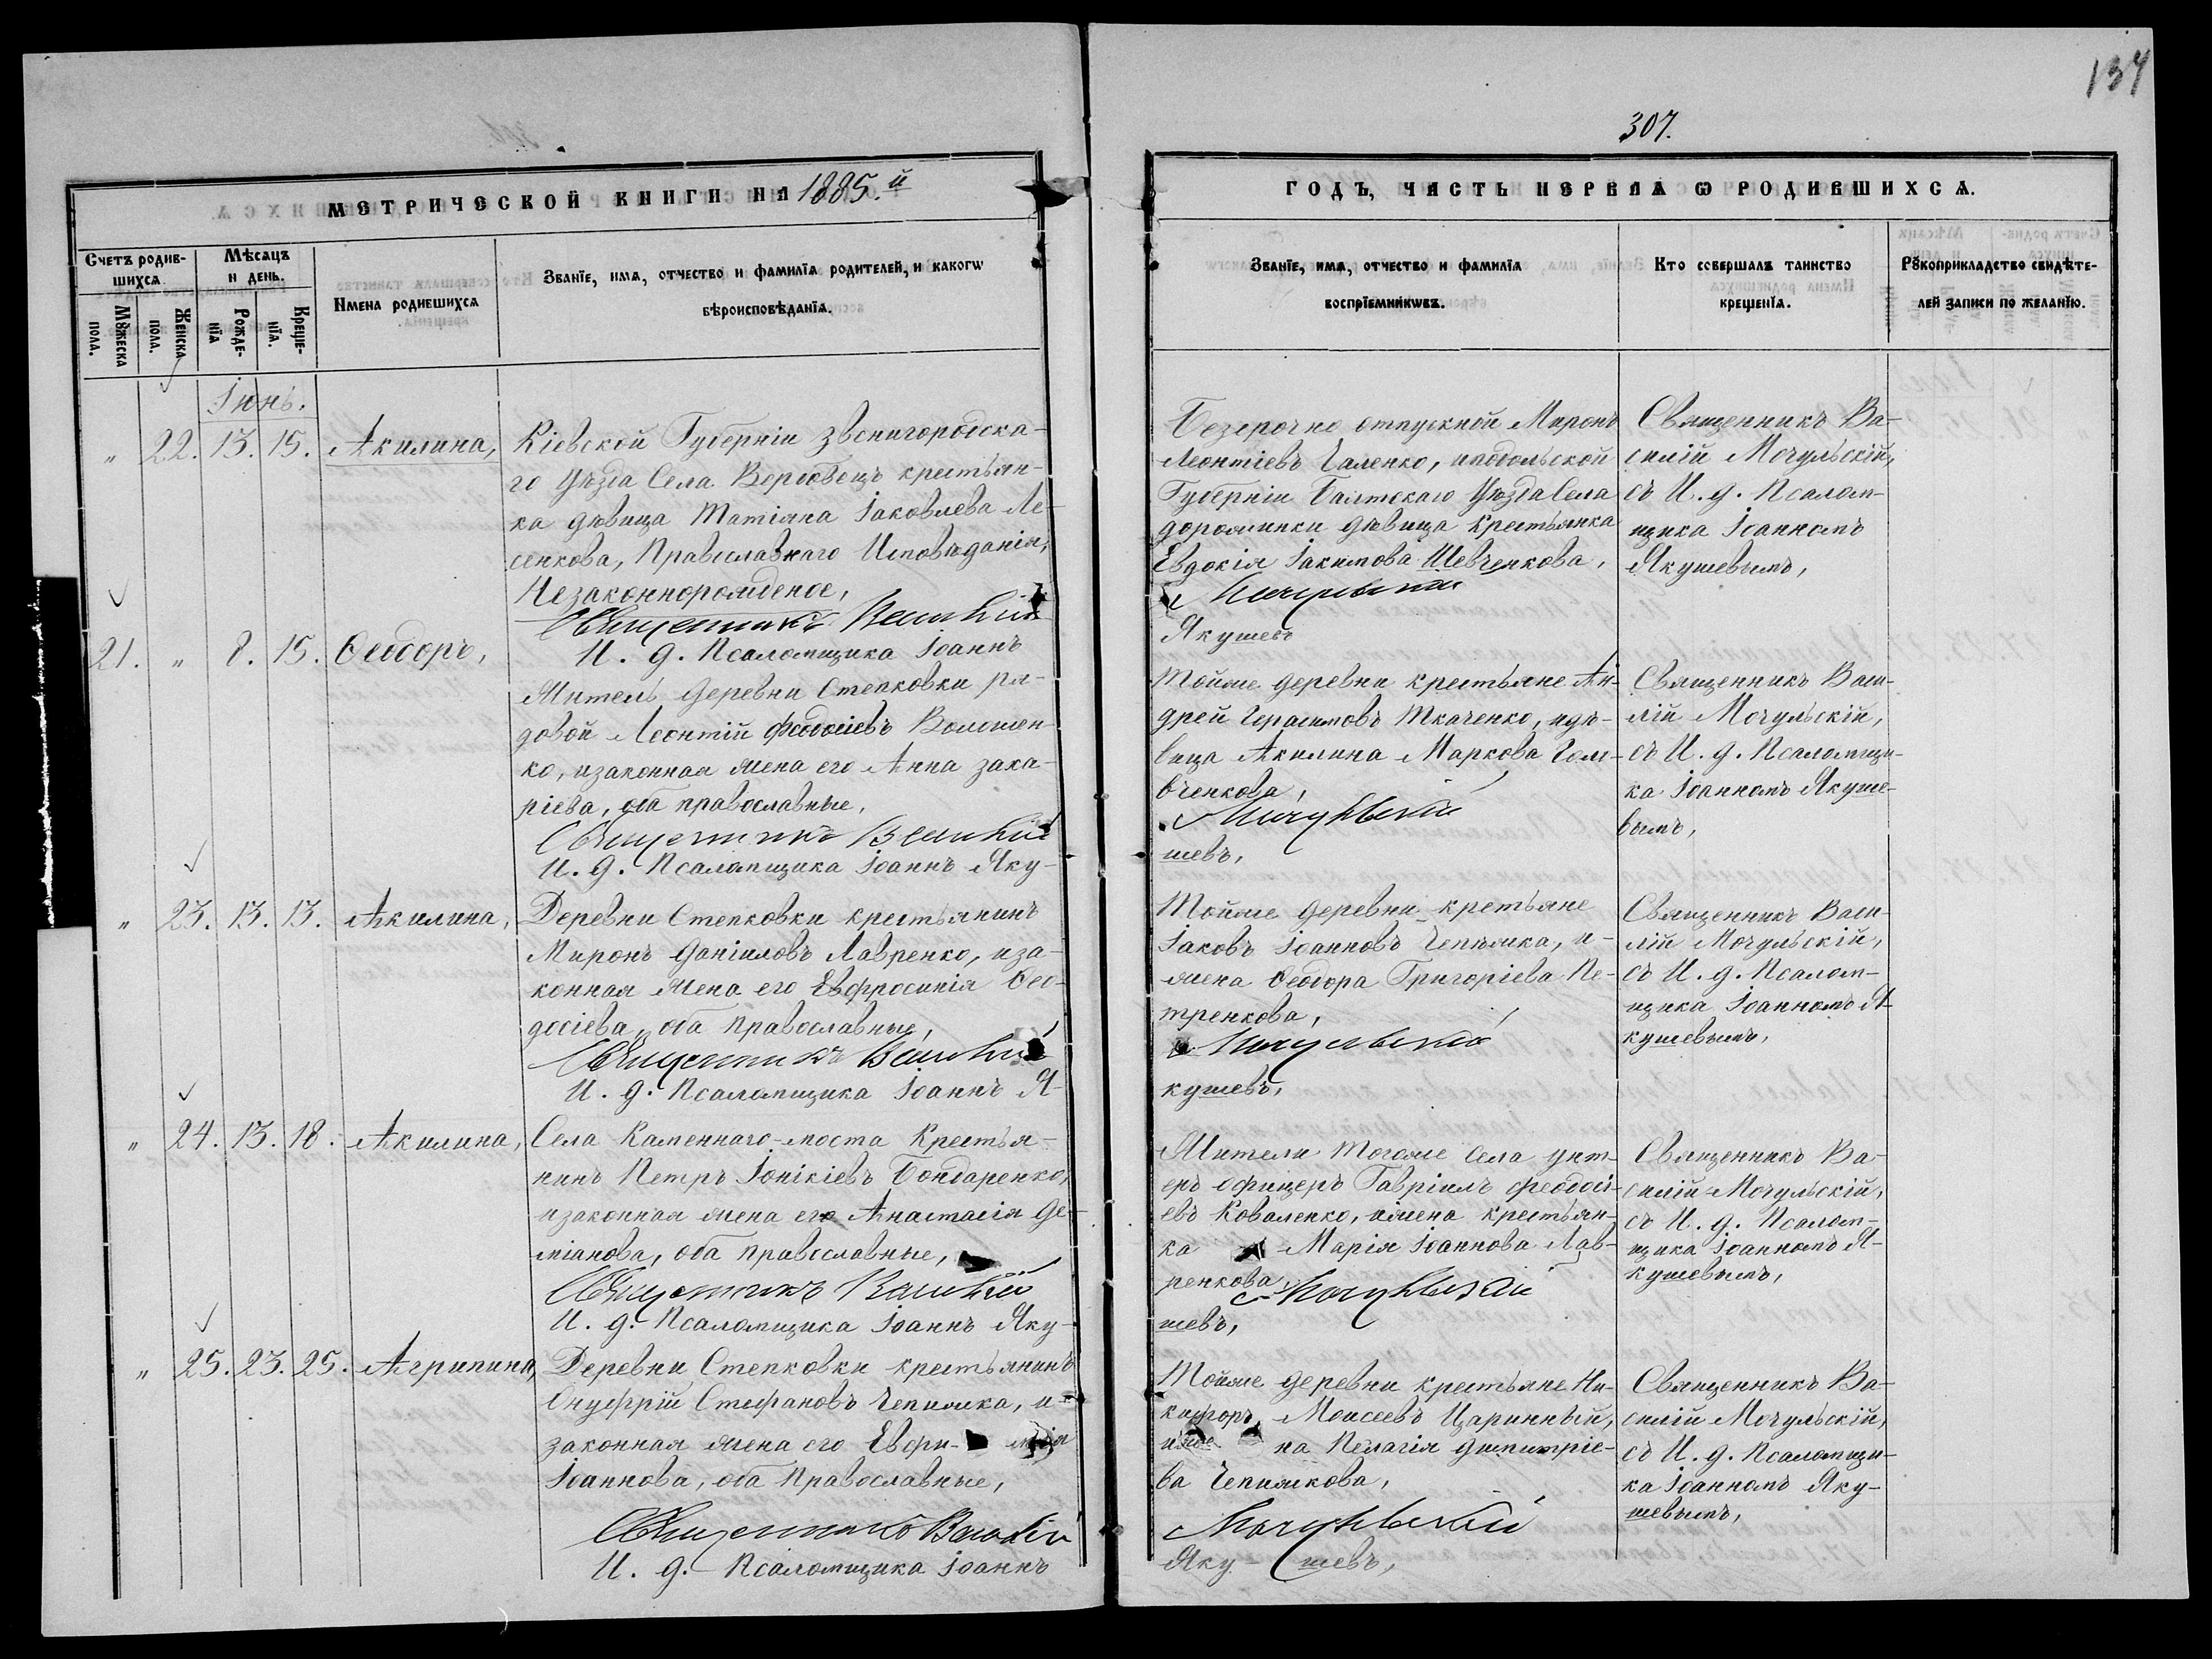 134
307.
МЕТРИЧЕСКОЙ КНИГИ НА 1885.й
ГОДЪ, ЧАСТЬ ПЕРВАѦ Ѿ РОДИВШИХСѦ.
Счетъ родив-
шихсѧ.
Мѣсѧцъ
и день.
Мꙋжеска
пола.
Женска
пола.
Рожде-
нїѧ
Креще-
нїѧ.
Имена родившихсѧ
Званїе, имѧ, отчество и фамилїѧ родителей, и какогѡ
вѣроисповѣданїѧ.
Званїе, имѧ, отчество и фамилїѧ
воспрїемникѡвъ.
Кто совершалъ таинство
крещенїѧ.
Рꙋкоприкладство свидѣте-
лей записи по желанїю.
Іюнь.
" 22. 13. 15. Акилина,
Кіевской Губерніи Звенигородска-
го Уѣзда Села Воробьвецъ крестьян-
ка дѣвица Татіяна Іаковлева Ле-
сенкова, Православнаго Исповѣданія,
Незаконнорожденое,
Священникъ Василій
И. д. Псаломщика Іоаннъ
Безсрочно отпускной Миронъ
Леонтіевъ Галенко, иподольской
Губерніи Балтскаго Уѣзда Села
дорожинки дѣвица крестьянка
Евдокія Іакимова Шевченкова,
Мочульскій
Якушевъ
Священникъ Ва-
силій Мочульскій,
съ И. д. Псалом-
щика Іоанномъ
Якушевымъ,
21. " 8. 15. Ѳеодоръ,
Житель деревни Степковки ря-
довой Леонтій Феодосіевъ Волошен-
ко, изаконная жена его Анна Заха-
ріева, оба православные,
Священникъ Василій
И. д. Псаломщика Іоаннъ Яку-
Тойже деревни крестьяне Ан-
дрей Герасимовъ Ткаченко, идѣ-
вица Акилина Маркова Гол-
вченкова,
Мочульскій
шевъ,
Священникъ Васи-
лій Мочульскій,
съ И. д. Псаломщи-
ка Іоанномъ Якуше-
вымъ,
" 23. 13. 13. Акилина,
Деревни Степковки крестьянинъ
Миронъ Даніиловъ Лавренко, иза-
конная жена его Евфросинія Ѳео-
досіева, оба православные,
Священникъ Василій
И. д. Псаломщика Іоаннъ Я-
Тойже деревни кретьяне
Іаковъ Іоанновъ Чепижка, и-
жена Ѳеодора Григоріева Пе-
тренкова,
Мочульскій
кушевъ,
Священникъ Васи-
лій Мочульскій,
съ И. д. Псалом-
щика Іоанномъ Я-
кушевымъ,
" 24. 13. 18. Акилина,
Села Каменнаго-моста Крестья-
нинъ Петръ Іонікіевъ Бондаренко,
изаконная жена его Анастасія Де-
міанова, оба православные,
Священникъ Василій
И. д. Псаломщика Іоаннъ Яку-
Жители тогоже Села унт-
еръ офицеръ Гавріилъ Феодосі-
евъ Коваленко, ижена крестьян-
ка Марія Іоаннова Лав-
ренкова,
Мочульскій
шевъ,
Священникъ Ва-
силій Мочульскій,
съ И. д. Псалом-
щика Іоанномъ Я-
кушевымъ,
" 25. 23. 25. Агрипина,
Деревни Степковки крестьянинъ
Онуфрій Стефановъ Чепижка, и-
законная жена его Евфи- мія
Іоаннова, оба Православные,
Священникъ Василій
И. д. Псаломщика Іоаннъ
Тойже деревни крестьяне Ни-
кифоръ Моисеевъ Царинный,
иже на Пелагія Димитріе-
ва Чепижкова,
Мочульскій
Яку- шевъ,
Священникъ Ва-
силій Мочульскій,
съ И. д. Псаломщи-
ка Іоанномъ Яку-
шевымъ,